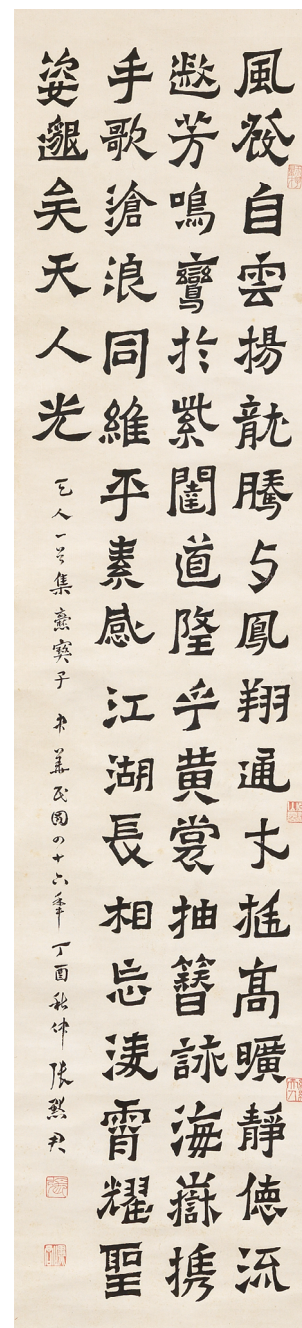 風發自雲揚龍騰与鳳翔通才挺高曠靜德流
芳鳴鸞於紫闥道隆乎黃裳抽簪詠海嶽携
手歌滄浪同維平素感江湖長相忘淩霄耀聖
姿邈矣天人光
天人一首集爨寶子 中華民國四十六年丁酉秋仲 張默君